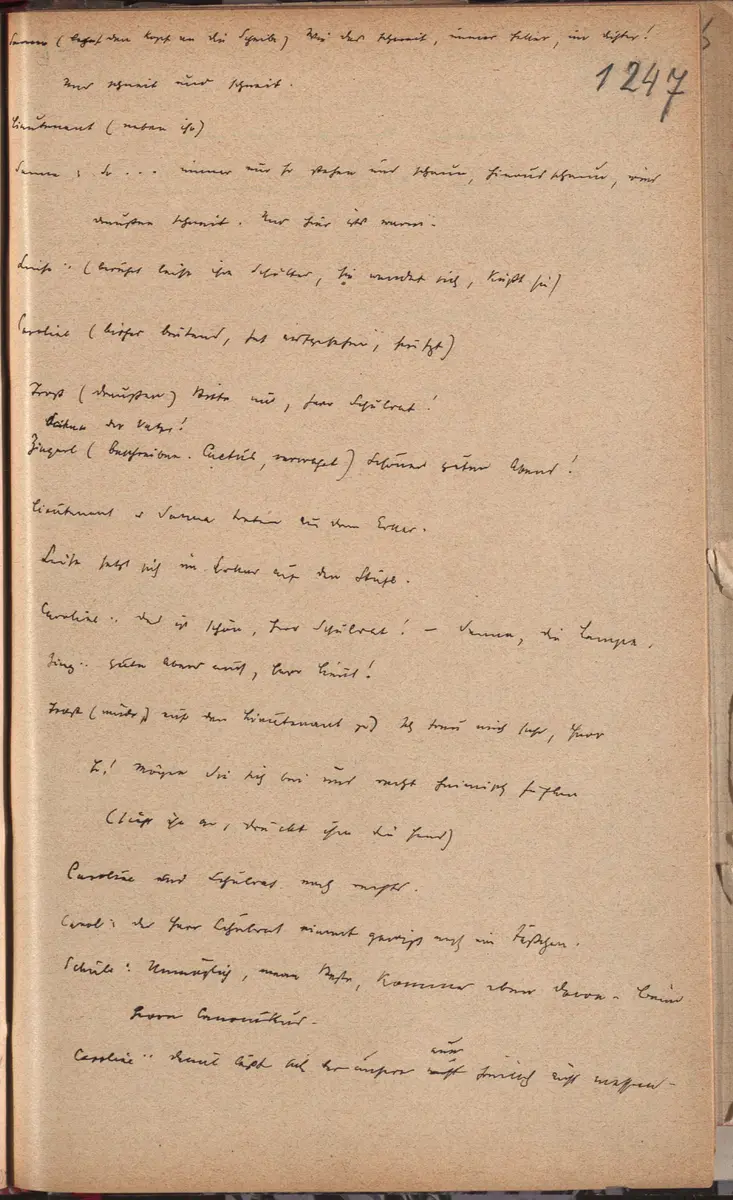 1247
Sanna (lehnt den Kopf an die Scheibe) Wie das schneit, immer toller, immer dichter!
Und schneit und schneit.
Lieutenant (neben ihr)
Sanna : So ... immer nur so stehen und schaun, hinausschaun, wies
draußen schneit. Und hier ists warm.
Luise :: (berührt leise ihre Schulter, sie wendet sich, küßt sie)
Caroline (bisher brütend, hat aufgesehen, seufzt)
Trost (draußen) Bitte nur, Herr Schulrat!
der Vater!
Zingerl ( ) Schönen guten Abend!
Lieutenant u Sanna treten aus dem Erker.
Luise setzt sich im Erker auf den Stuhl.
Caroline :: das ist schön, Herr Schulrat! – Sanna, die Lampe.
Zing :: guten Abend auch, Herr Lieut!
Trost (müde, auf den Lieutenant zu) Ich freu mich sehr, Herr
L! Mögen Sie sich bei uns recht heimisch fühlen
(sieht ihn an, drückt ihm die Hand)
Caroline und Schulrat nach rechts.
Carol : der Herr Schulrat nimmt gewiß auch ein Täßchen.
Schulr : Unmöglich, meine Beste, komme eben davon – beim
Herrn Canonikus –
Caroline :: damit läßt sich der unsere nun freilich nicht messen –